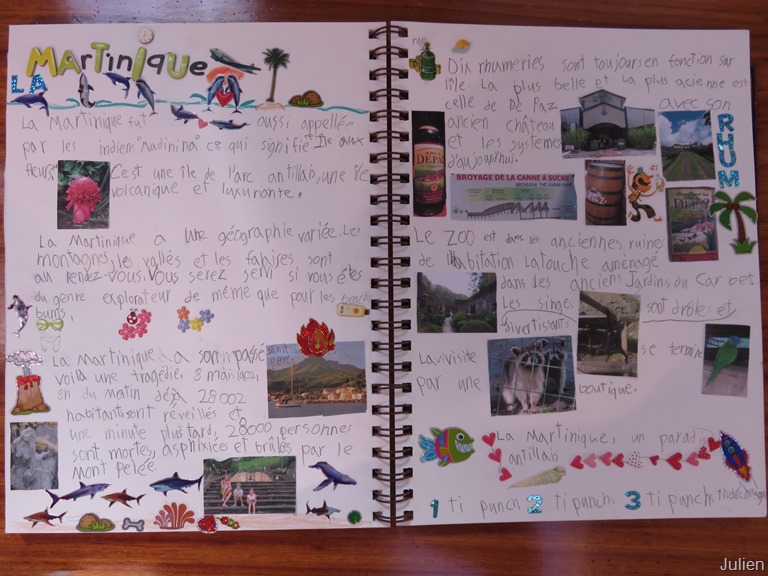 LA MARTINIQUE
La Martinique fut aussi appellée
par les indiens "Madinina" ce qui signifie Ile aux
fleurs. C'est une île de l'arc antillais, une île
volcanique et luxuriante.
La Martinique a une géographie variée. Les
montagnes, les vallés et les falaises sont
au rendez-vous. Vous serez servi si vous êtes
du genre explorateur de même que pour les beach
bums.
La Martinique a son passé
voilà une tragédie, 8 mai 1902,
8h du matin déjà 28002
habitants sont réveillés et
une minute plus tard, 28000 personnes
sont mortes, asphixiées et brûlés par le
Mont Pelée.
saint
pierre
rum
Dix rhumeries sont toujours en fonction sur
l'île. La plus belle et la plus acienne est
celle de De Paz avec son
ancien château
et les systèmes
d'aujourd'hui.
RHUM
DEPAZ
BROYAGE DE LA CANNE A SUCRE
GRINDING THE SUGAR CANE
DEPAZ
Le ZOO est dans les anciennes ruines
de l'habitation Latouche aménagé
dans les anciens Jardins du Carbet
Les simes sont drôles et
divertissants
La visite se termine
par une boutique.
La Martinique, un paradis
antillais
1 ti punch 2 ti punch 3 ti punch
Julien